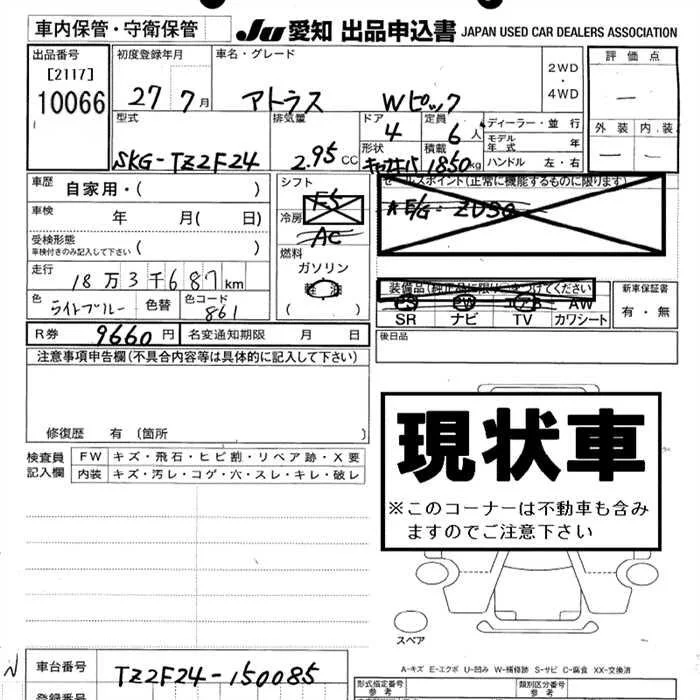 車内保管・守衛保管
Ju 愛知 出品申込書 JAPAN USED CAR DEALERS ASSOCIATION
出品番号
[2117]
10066
初度登録年月
27 7月
車名・グレード
アトラス Wピック
2WD
・
4WD
評価点
—
外装 内装
— —
型式
SKG-TZ2F24
排気量
2.95 CC
ドア
4
定員
6人
形状
積載
1850kg
ディーラー・並 行
モデル
年式 年
ハンドル 左・右
車歴 自家用・( )
車検 年 月( 日)
受検形態
車検付きのみ記入して下さい ( )
走行 18万3千687km
色 ライトブルー 色替 色コード
861
R券 9660円 名変通知期限 月 日
シフト
F5
冷房
AC
燃料
ガソリン
( )
セールスポイント(正常に機能するものに限ります)
装備品(純正品に限り つけてください
PS PW エアB AW
SR ナビ TV カワシート
新車保証書
有・無
後日品
注意事項申告欄(不具合内容等は具体的に記入して下さい)
修復歴 有(箇所 )
検査員
記入欄
FW キズ・飛石・ヒビ割・リペア跡・X要
内装 キズ・汚レ・コゲ・穴・スレ・キレ・破レ
現状車
※このコーナーは不動車も含み
ますのでご注意下さい
スペア
A-キズ E-エクボ U-凹み W-補修跡 S-サビ C-腐食 XX-交換済
車台番号 TZ2F24-150085
登録番号
形式指定番号
参 考
類別区分番号
参 考